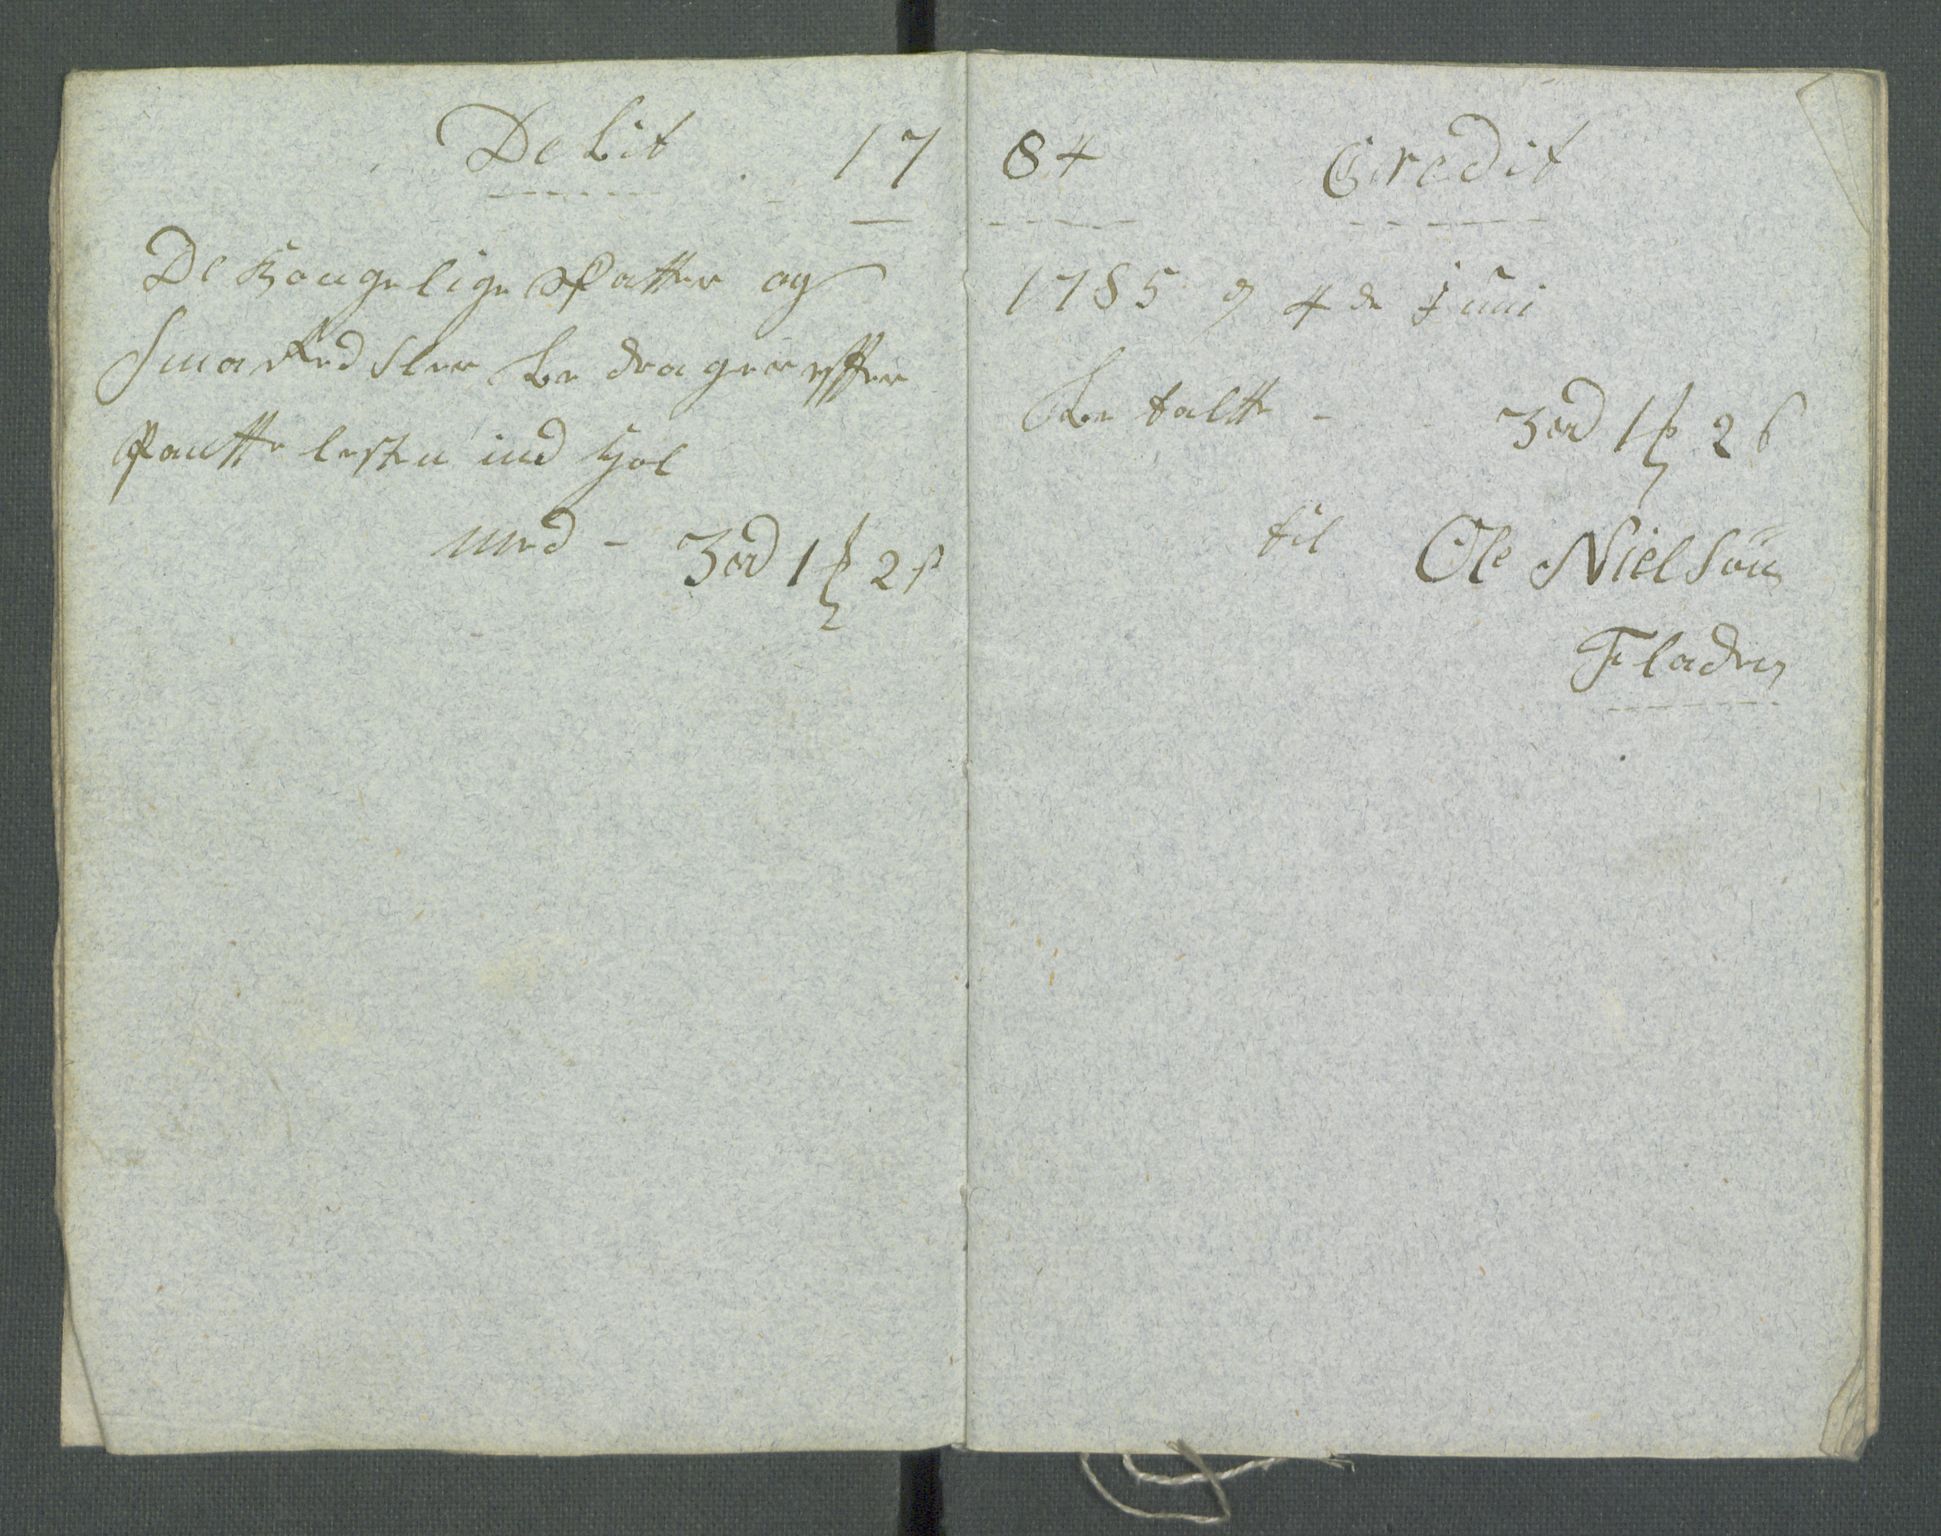 Debit 17
De Kongelige Skatter og
Smaa Redsler be drager effter
quitte
ind hol
med - 3rd 1 2s
84 Credit
1785 d 4de Juni
be talt - 3rd 1 2s
til Ole Nielsøn
Fladen